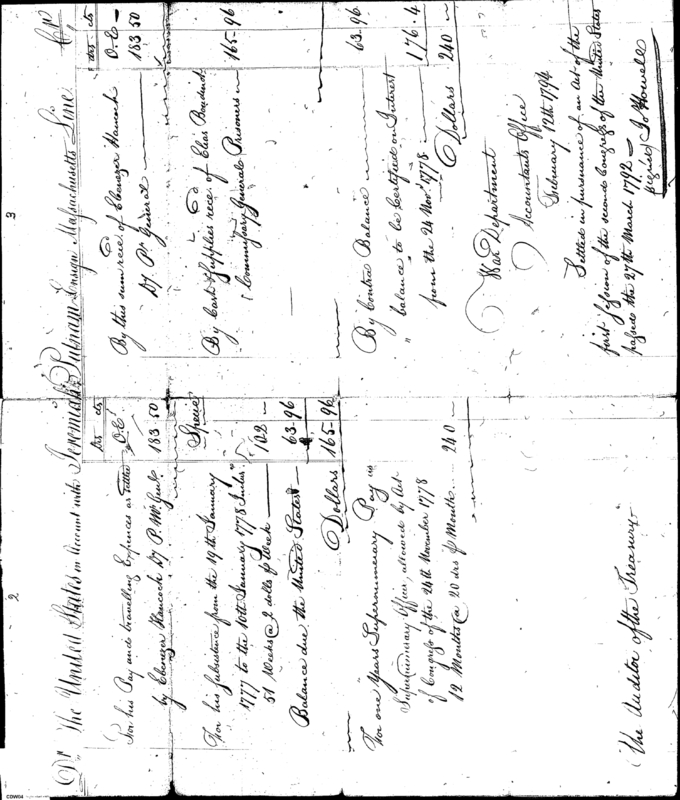 2
3
Dr The United States in Account with Jeremiah Putnam Ensign Massachusetts Line Cr
drs cts
For his Pay and travelling Expences as settled O.E
by Ebenezer Hancock Dy P. Mr Genl 183 50
Specie
For his Subsistence from the 19th January
1777 to the 10th January 1778 Inclus.
51 Weeks @ 2 dolls P Week 102
Balance due the United States 63.96
Dollars 165.96
For one Years Supernumerary Pay as
Supernumerary Officer, allowed by Act
of Congress of the 24th November 1778
12 Months @ 20 drs P Month 240
The Auditor of the Treasury
drs cts
By this sum rece. of Ebenezer Hancock O.E
Dy Pr General 183 50
By Cash & Supplies rece. of Elias Boudinot
Commissary General Prisoners 165.96
By Contra Balance 63.96
" balance to be Certified on Interest
from the 24 Novr 1778 176.4
Dollars 240
War Department
Accountants Office
February 12th 1794
Settled in pursuance of an Act of the
first session of the second Congress of the United States
passed the 27th March 1792
signed Jo Howell
CDW04